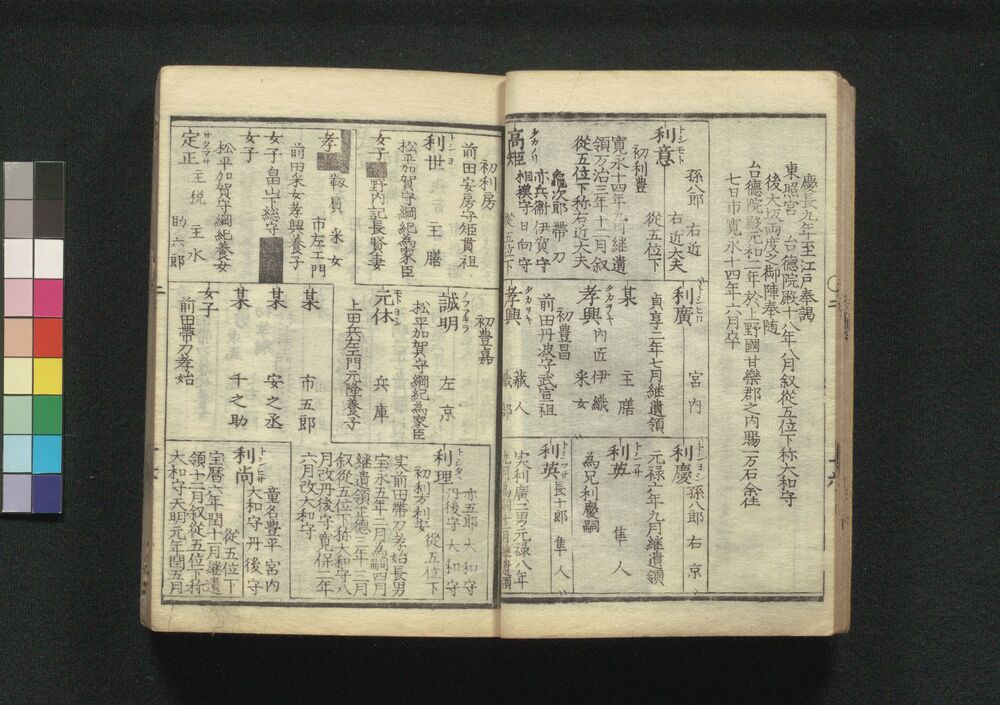 慶長九年至江戸奉謁
東照宮 台德院殿十八年八月叙從五位下称大和守
後大坂両度之御陣奉随
台德院殿元和二年於上野國甘樂郡之内賜一万石余住
七日市寛永十四年六月卒
トシモト
利意 孫八郎 右近
右近大夫
初利豊 從五位下
寛永十四年九月継遺
領万治三年十二月叙
從五位下称右近大夫
タカノリ
高矩 亀次郎 帯刀
亦兵衛 伊賀守
相模守 日向守
從五位下
トシヒロ
利廣 宮内
貞享二年七月継遺領
某 主膳
タカヲキ
孝興 内匠 伊織
采女
初豊昌
前田丹波守武宣祖
タカヲキ
孝興 蔵人
トシヨシ
利慶 孫八郎 右京
元禄六年九月継遺領
利英 隼人
為兄利慶嗣
トシフサ
利英 長十郎 隼人
実利廣二男元禄八年
初利房
前田安房守矩貫祖
トシヨ
利世 主膳
松平加賀守綱紀為家臣
女子 野内記長賢妻
孝 靱員 采女
市左エ門
前田采女孝興養子
女子 畠山下総守
女子
松平加賀守綱紀養女
サタマサ
定正 主税 主水
助六郎
初豊嘉
ノフアキラ
誠明 左京
松平加賀守綱紀為家臣
モトヨシ
元休 兵庫
上田兵左エ門元隆養子
某 市五郎
某 安之丞
某 千之助
女子
前田帯刀孝始
トシタヽ
利理 亦五郎 大和守
丹後守 大和守
初利方利安 從五位下
実前田帯刀孝始長男
宝永五年三月為嗣四月
継遺領正德三年三月
叙從五位下称大和守八
月改丹後守寛保二年
六月改大和守
トシヒサ
利尚 童名豊平 宮内
大和守 丹後守
從五位下
宝暦六年閏十一月継遺
領十二月叙從五位下称
大和守天明元年閏五月